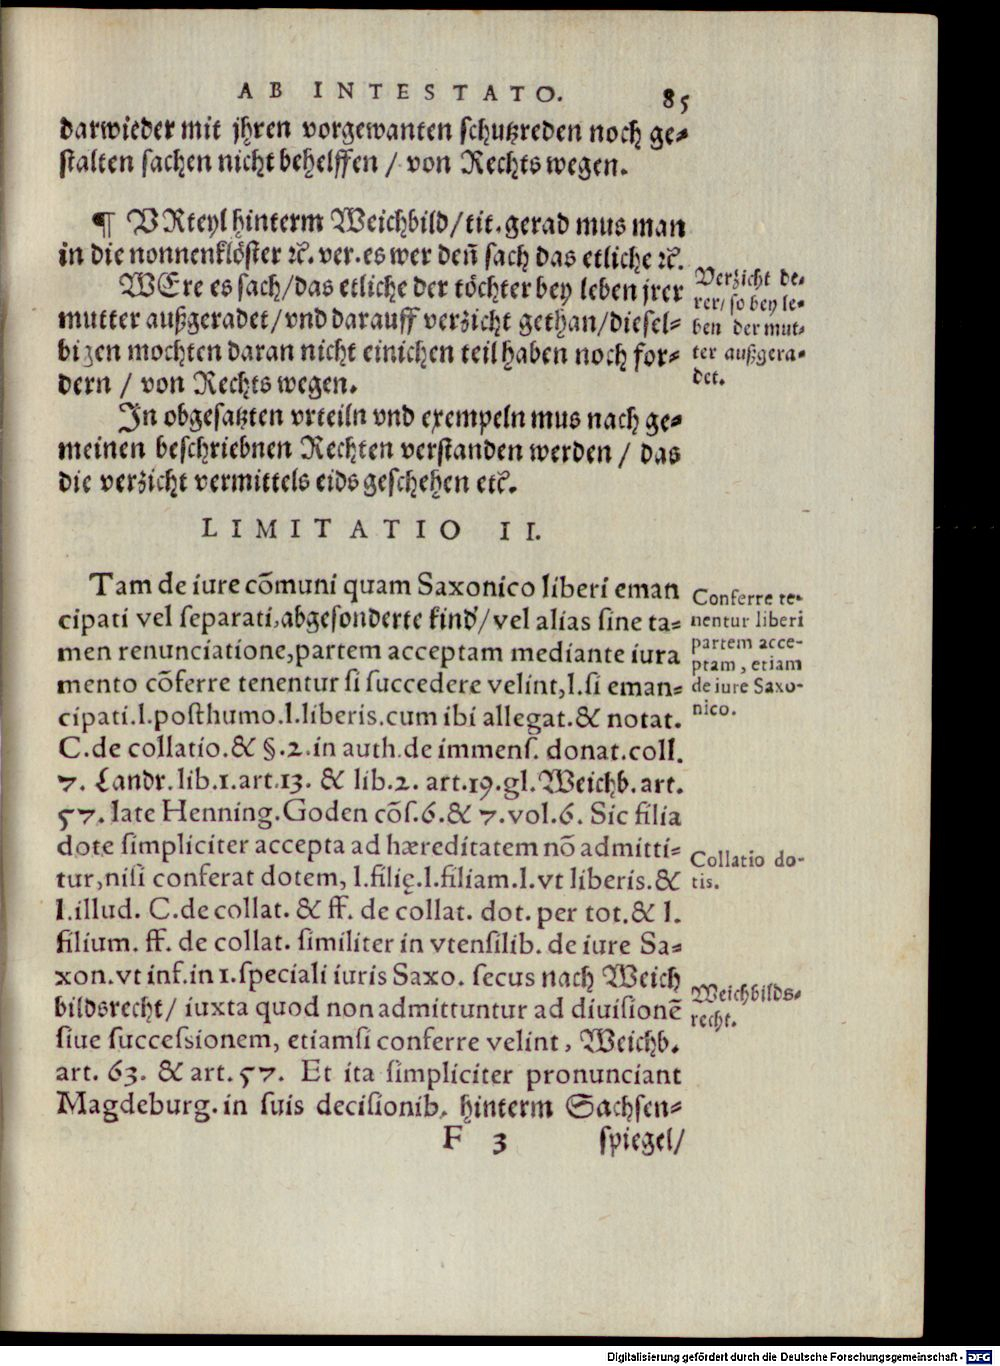 AB INTESTATO. 85
darwieder mit jhren vorgewanten schutzreden noch ge=
stalten sachen nicht behelffen / von Rechts wegen.
¶ VRteyl hinterm Weichbild / tit. gerad mus man
in die nonnenklöster ꝛc. ver. es wer deñ sach das etliche ꝛc.
WEre es sach / das etliche der töchter bey leben jrer
mutter außgeradet / vnd darauff verzicht gethan / diesel=
bigen mochten daran nicht einichen teil haben noch for=
dern / von Rechts wegen.
Verzicht de=
rer / so bey le=
ben der mut=
ter außgera=
det.
In obgesatzten vrteiln vnd exempeln mus nach ge=
meinen beschriebnen Rechten verstanden werden / das
die verzicht vermittels eids geschehen etc.
LIMITATIO II.
Tam de iure cõmuni quam Saxonico liberi eman
cipati vel separati, abgesonderte kind / vel alias sine ta=
men renunciatione, partem acceptam mediante iura
mento cõferre tenentur si succedere velint, l. si eman=
cipati. l. posthumo. l. liberis. cum ibi allegat. & notat.
C. de collatio. & §. 2. in auth. de immens. donat. coll.
7. Landr. lib. 1. art. 13. & lib. 2. art. 19. gl. Weichb. art.
57. late Henning. Goden cõs. 6. & 7. vol. 6. Sic filia
dote simpliciter accepta ad hæreditatem nõ admitti=
tur, nisi conferat dotem, l. filię. l. filiam. l. vt liberis. &
l. illud. C. de collat. & ff. de collat. dot. per tot. & l.
filium. ff. de collat. similiter in vtensilib. de iure Sa=
xon. vt inf. in 1. speciali iuris Saxo. secus nach Weich
bildsrecht / iuxta quod non admittuntur ad diuisionẽ
siue successionem, etiamsi conferre velint, Weichb.
art. 63. & art. 57. Et ita simpliciter pronunciant
Magdeburg. in suis decisionib. hinterm Sachsen=
Conferre te-
nentur liberi
partem acce-
ptam, etiam
de iure Saxo-
nico.
Collatio do-
tis.
Weichbilds=
recht.
F 3 spiegel /
Digitalisierung gefördert durch die Deutsche Forschungsgemeinschaft - DFG